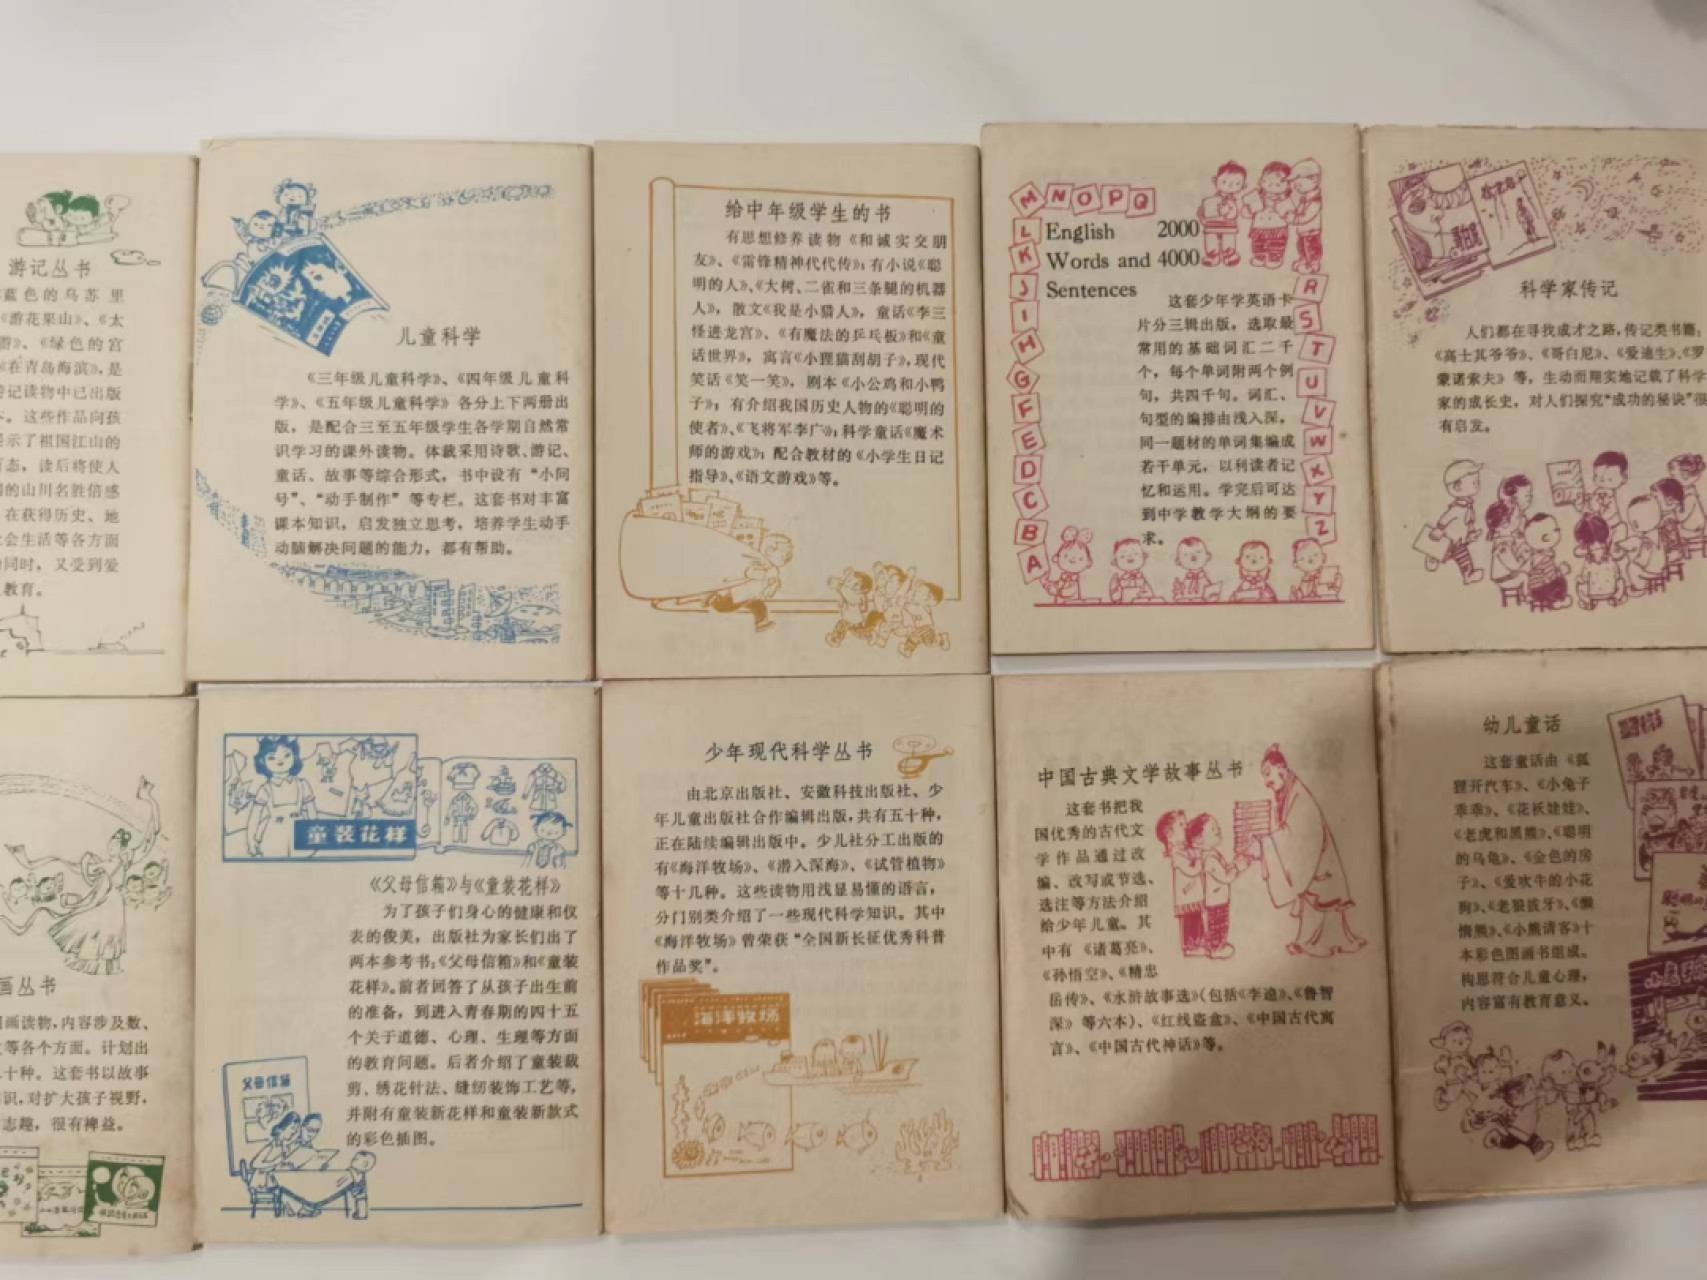 游记丛书
蓝色的乌苏里
《游花果山》、《太
》、《绿色的宫
《在青岛海滨》,是
游记读物中已出版
。这些作品向孩
展示了祖国江山的
百态,读后将使人
国的山川名胜倍感
在获得历史、地
社会生活等各方面
同时,又受到爱
教育。
儿童科学
《三年级儿童科学》、《四年级儿童科
学》、《五年级儿童科学》各分上下两册出
版,是配合三至五年级学生各学期自然常
识学习的课外读物。体裁采用诗歌、游记、
童话、故事等综合形式,书中设有“小问
号”、“动手制作”等专栏。这套书对丰富
课本知识,启发独立思考,培养学生动手
动脑解决问题的能力,都有帮助。
给中年级学生的书
有思想修养读物《和诚实交朋
友》、《雷锋精神代代传》;有小说《聪
明的人》、《大树、二雀和三条腿的机器
人》,散文《我是小猎人》,童话《李三
怪进龙宫》、《有魔法的乒乓板》和《童
话世界》,寓言《小狸猫刮胡子》,现代
笑话《笑一笑》,剧本《小公鸡和小鸭
子》;有介绍我国历史人物的《聪明的
使者》、《飞将军李广》;科学童话《魔术
师的游戏》;配合教材的《小学生日记
指导》、《语文游戏》等。
M N O P Q
L
K
J
I
H
G
F
E
D
C
B
A
R
S
T
U
V
W
X
Y
Z
English 2000
Words and 4000
Sentences
这套少年学英语卡
片分三辑出版,选取最
常用的基础词汇二千
个,每个单词附两个例
句,共四千句。词汇、
句型的编排由浅入深,
同一题材的单词集编成
若干单元,以利读者记
忆和运用。学完后可达
到中学教学大纲的要
求。
科学家传记
人们都在寻找成才之路,传记类书籍,
《高士其爷爷》、《哥白尼》、《爱迪生》、《罗
蒙诺索夫》等,生动而翔实地记载了科学
家的成长史,对人们探究“成功的秘诀”很
有启发。
画丛书
画读物,内容涉及数、
等各个方面。计划出
十种。这套书以故事
识,对扩大孩子视野,
志趣,很有裨益。
童装花样
《父母信箱》与《童装花样》
为了孩子们身心的健康和仪
表的俊美,出版社为家长们出了
两本参考书:《父母信箱》和《童装
花样》。前者回答了从孩子出生前
的准备,到进入青春期的四十五
个关于道德、心理、生理等方面
的教育问题。后者介绍了童装裁
剪、绣花针法、缝纫装饰工艺等,
并附有童装新花样和童装新款式
的彩色插图。
父母信箱
少年现代科学丛书
由北京出版社、安徽科技出版社、少
年儿童出版社合作编辑出版,共有五十种,
正在陆续编辑出版中。少儿社分工出版的
有《海洋牧场》、《潜入深海》、《试管植物》
等十几种。这些读物用浅显易懂的语言,
分门别类介绍了一些现代科学知识。其中
《海洋牧场》曾荣获“全国新长征优秀科普
作品奖”。
中国古典文学故事丛书
这套书把我
国优秀的古代文
学作品通过改
编、改写或节选、
选注等方法介绍
给少年儿童。其
中有《诸葛亮》、
《孙悟空》、《精忠
岳传》、《水浒故事选》(包括《李逵》、《鲁智
深》等六本)、《红线盗盒》、《中国古代寓
言》、《中国古代神话》等。
幼儿童话
这套童话由《狐
狸开汽车》、《小兔子
乖乖》、《花袄娃娃》、
《老虎和黑熊》、《聪明
的乌龟》、《金色的房
子》、《爱吹牛的小花
狗》、《老狼拔牙》、《懒
懒熊》、《小熊请客》十
本彩色图画书组成。
构思符合儿童心理,
内容富有教育意义。